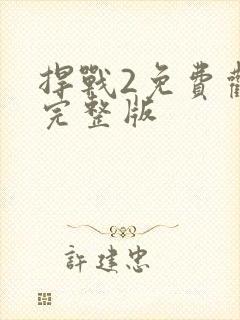 捍戰2免費觀
完整版
許建忠